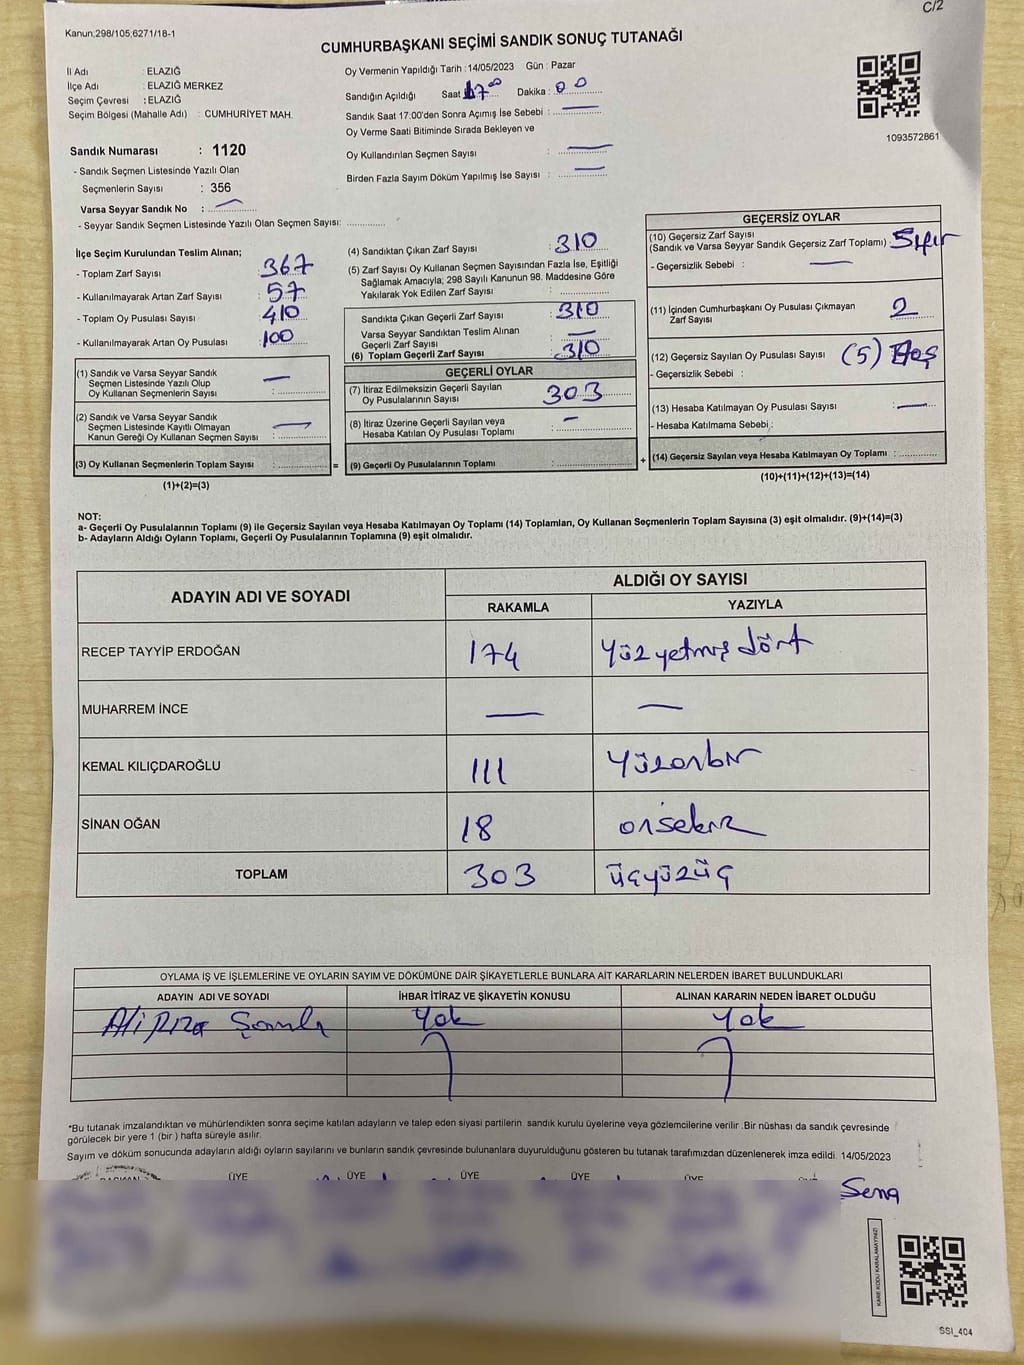 C/2
Kanun;298/105;6271/18-1
CUMHURBAŞKANI SEÇİMİ SANDIK SONUÇ TUTANAĞI
İl Adı : ELAZIĞ
İlçe Adı : ELAZIĞ MERKEZ
Seçim Çevresi : ELAZIĞ
Seçim Bölgesi (Mahalle Adı) : CUMHURİYET MAH.
Sandık Numarası : 1120
- Sandık Seçmen Listesinde Yazılı Olan
Seçmenlerin Sayısı : 356
Varsa Seyyar Sandık No : —
- Seyyar Sandık Seçmen Listesinde Yazılı Olan Seçmen Sayısı: ............
Oy Vermenin Yapıldığı Tarih : 14/05/2023 Gün : Pazar
Sandığın Açıldığı Saat 17⁰⁰ Dakika : 00
Sandık Saat 17.00'den Sonra Açımış İse Sebebi : —
Oy Verme Saati Bitiminde Sırada Bekleyen ve
Oy Kullandırılan Seçmen Sayısı : —
Birden Fazla Sayım Döküm Yapılmış İse Sayısı : —
1093572861
İlçe Seçim Kurulundan Teslim Alınan;
- Toplam Zarf Sayısı : 367
- Kullanılmayarak Artan Zarf Sayısı : 57
- Toplam Oy Pusulası Sayısı : 410
- Kullanılmayarak Artan Oy Pusulası : 100
(1) Sandık ve Varsa Seyyar Sandık
Seçmen Listesinde Yazılı Olup
Oy Kullanan Seçmenlerin Sayısı : —
(2) Sandık ve Varsa Seyyar Sandık
Seçmen Listesinde Kayıtlı Olmayan
Kanun Gereği Oy Kullanan Seçmen Sayısı : —
(3) Oy Kullanan Seçmenlerin Toplam Sayısı : ............ =
(1)+(2)=(3)
(4) Sandıktan Çıkan Zarf Sayısı : 310
(5) Zarf Sayısı Oy Kullanan Seçmen Sayısından Fazla İse, Eşitliği
Sağlamak Amacıyla; 298 Sayılı Kanunun 98. Maddesine Göre
Yakılarak Yok Edilen Zarf Sayısı : ............
Sandıkta Çıkan Geçerli Zarf Sayısı : 310
Varsa Seyyar Sandıktan Teslim Alınan
Geçerli Zarf Sayısı : —
(6) Toplam Geçerli Zarf Sayısı : 310
GEÇERLİ OYLAR
(7) İtiraz Edilmeksizin Geçerli Sayılan
Oy Pusulalarının Sayısı : 303
(8) İtiraz Üzerine Geçerli Sayılan veya
Hesaba Katılan Oy Pusulası Toplamı : —
(9) Geçerli Oy Pusulalarının Toplamı : ............ +
GEÇERSİZ OYLAR
(10) Geçersiz Zarf Sayısı
(Sandık ve Varsa Seyyar Sandık Geçersiz Zarf Toplamı) : Sıfır
- Geçersizlik Sebebi : —
(11) İçinden Cumhurbaşkanı Oy Pusulası Çıkmayan
Zarf Sayısı : 2
(12) Geçersiz Sayılan Oy Pusulası Sayısı : (5) Beş
- Geçersizlik Sebebi :
(13) Hesaba Katılmayan Oy Pusulası Sayısı : —
- Hesaba Katılmama Sebebi :
(14) Geçersiz Sayılan veya Hesaba Katılmayan Oy Toplamı : ............
(10)+(11)+(12)+(13)=(14)
NOT:
a- Geçerli Oy Pusulalarının Toplamı (9) ile Geçersiz Sayılan veya Hesaba Katılmayan Oy Toplamı (14) Toplamları, Oy Kullanan Seçmenlerin Toplam Sayısına (3) eşit olmalıdır. (9)+(14)=(3)
b- Adayların Aldığı Oyların Toplamı, Geçerli Oy Pusulalarının Toplamına (9) eşit olmalıdır.
ADAYIN ADI VE SOYADI ALDIĞI OY SAYISI
RAKAMLA YAZIYLA
RECEP TAYYİP ERDOĞAN 174 Yüzyetmiş dört
MUHARREM İNCE — —
KEMAL KILIÇDAROĞLU 111 Yüzonbir
SİNAN OĞAN 18 onsekiz
TOPLAM 303 üçyüzüç
OYLAMA İŞ VE İŞLEMLERİNE VE OYLARIN SAYIM VE DÖKÜMÜNE DAİR ŞİKAYETLERLE BUNLARA AİT KARARLARIN NELERDEN İBARET BULUNDUKLARI
ADAYIN ADI VE SOYADI İHBAR İTİRAZ VE ŞİKAYETİN KONUSU ALINAN KARARIN NEDEN İBARET OLDUĞU
Ali Rıza Şanlı Yok Yok
*Bu tutanak imzalandıktan ve mühürlendikten sonra seçime katılan adayların ve talep eden siyasi partilerin sandık kurulu üyelerine veya gözlemcilerine verilir .Bir nüshası da sandık çevresinde
görülecek bir yere 1 (bir ) hafta süreyle asılır.
Sayım ve döküm sonucunda adayların aldığı oyların sayılarını ve bunların sandık çevresinde bulunanlara duyurulduğunu gösteren bu tutanak tarafımızdan düzenlenerek imza edildi. 14/05/2023
BAŞKAN ÜYE ÜYE ÜYE ÜYE ÜYE
Sena
KARE KODU KARALAMAYINIZ!
SSI_404